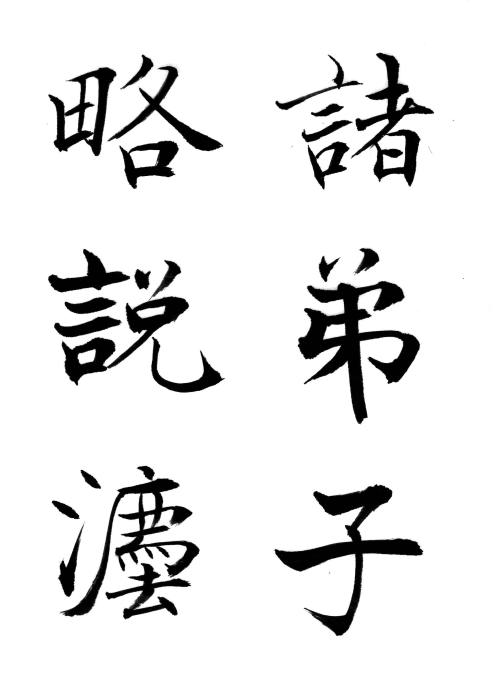 諸弟子
略説灋